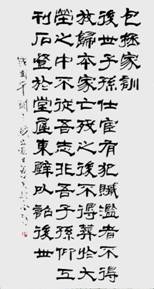 包拯家訓
後世子孫仕宦有犯贓濫者不得
放歸本家亡歿之後不得葬於大
塋之中不從吾志非吾子孫仰工
刊石竪於堂屋東壁以詔後世